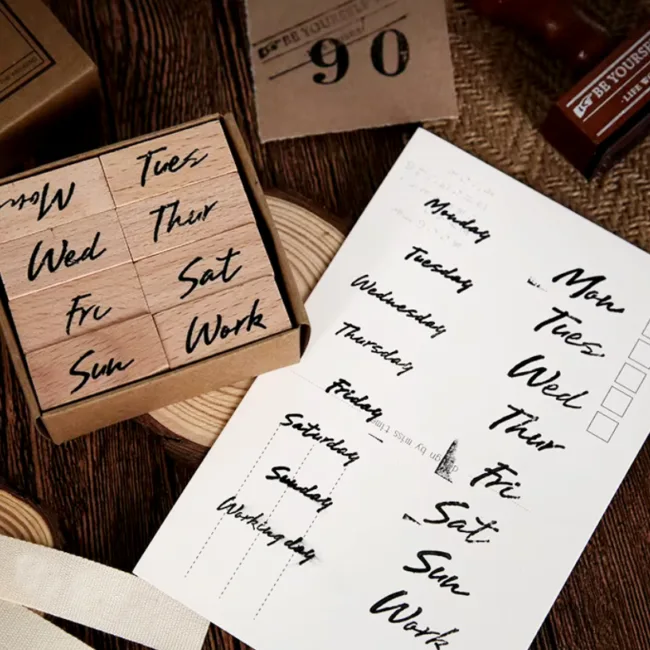 BE YOURSELF
90
BE YOURSE
LIFE
Mon
Tues
Wed
Thur
Fri
Sat
Sun
Work
Monday
Tuesday
Wednesday
Thursday
Friday
Saturday
Sunday
Working day
design by miss time
Mon
Tues
Wed
Thur
Fri
Sat
Sun
Work